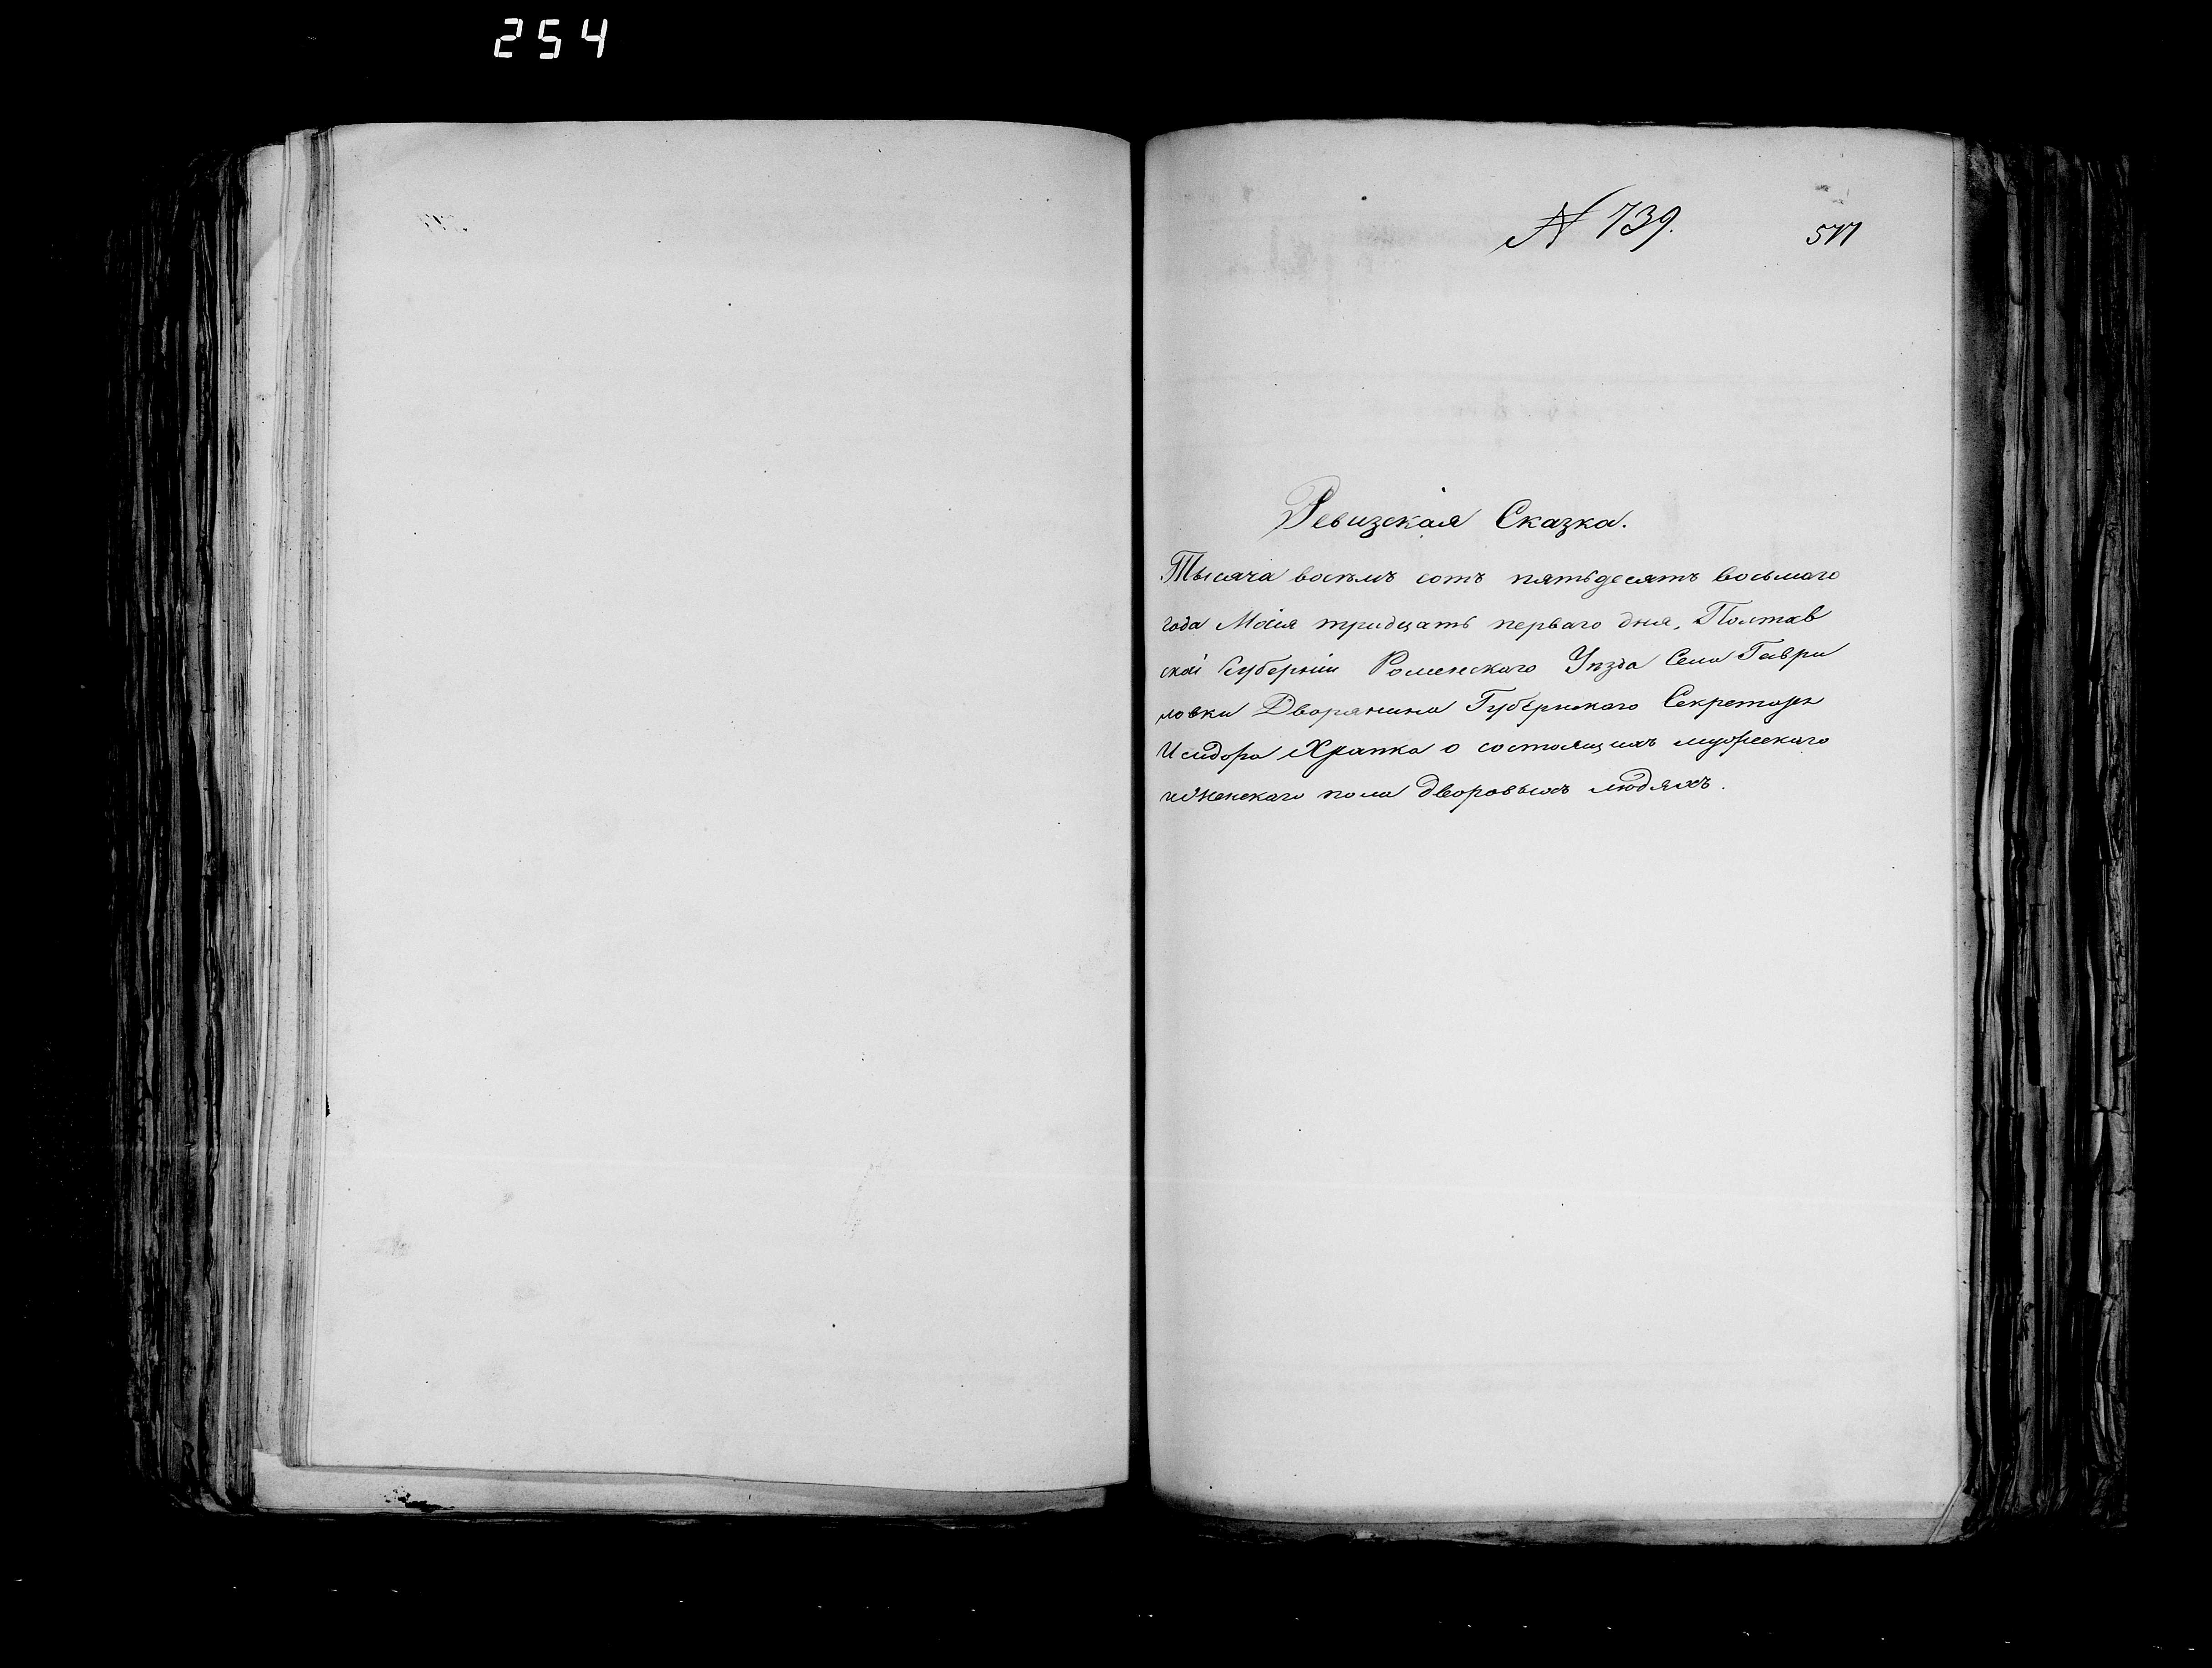 254
N 739.
577
Ревизская Сказка.
Тысяча восемъ сотъ пятьдесятъ восьмаго
года Маія тридцать перваго дня, Полтав
ской Губерніи Роменского Уѣзда Села Гаври
ловки Дворянина Губернского Секретаря
Исидора Храпка о состоящихъ мужескаго
и женскаго пола дворовыхъ людяхъ.